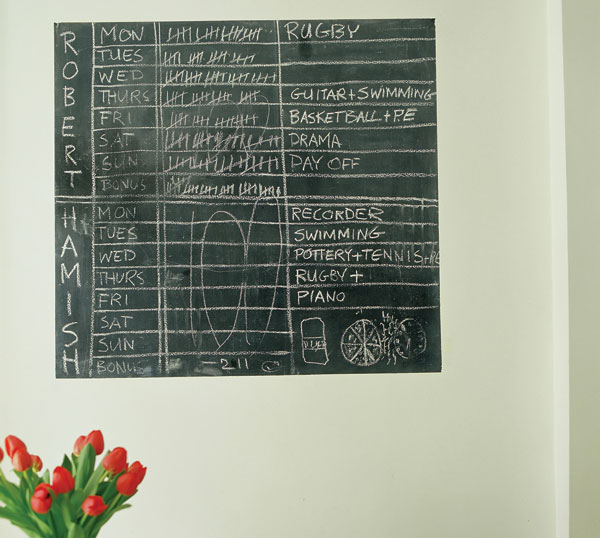 ROBERT
MON RUGBY
TUES
WED
THURS GUITAR+SWIMMING
FRI BASKETBALL+PE
SAT DRAMA
SUN DAY OFF
BONUS
HAMISH
MON RECORDER
TUES SWIMMING
WED POTTERY+TENNIS+PE
THURS RUGBY+
FRI PIANO
SAT
SUN
BONUS -211